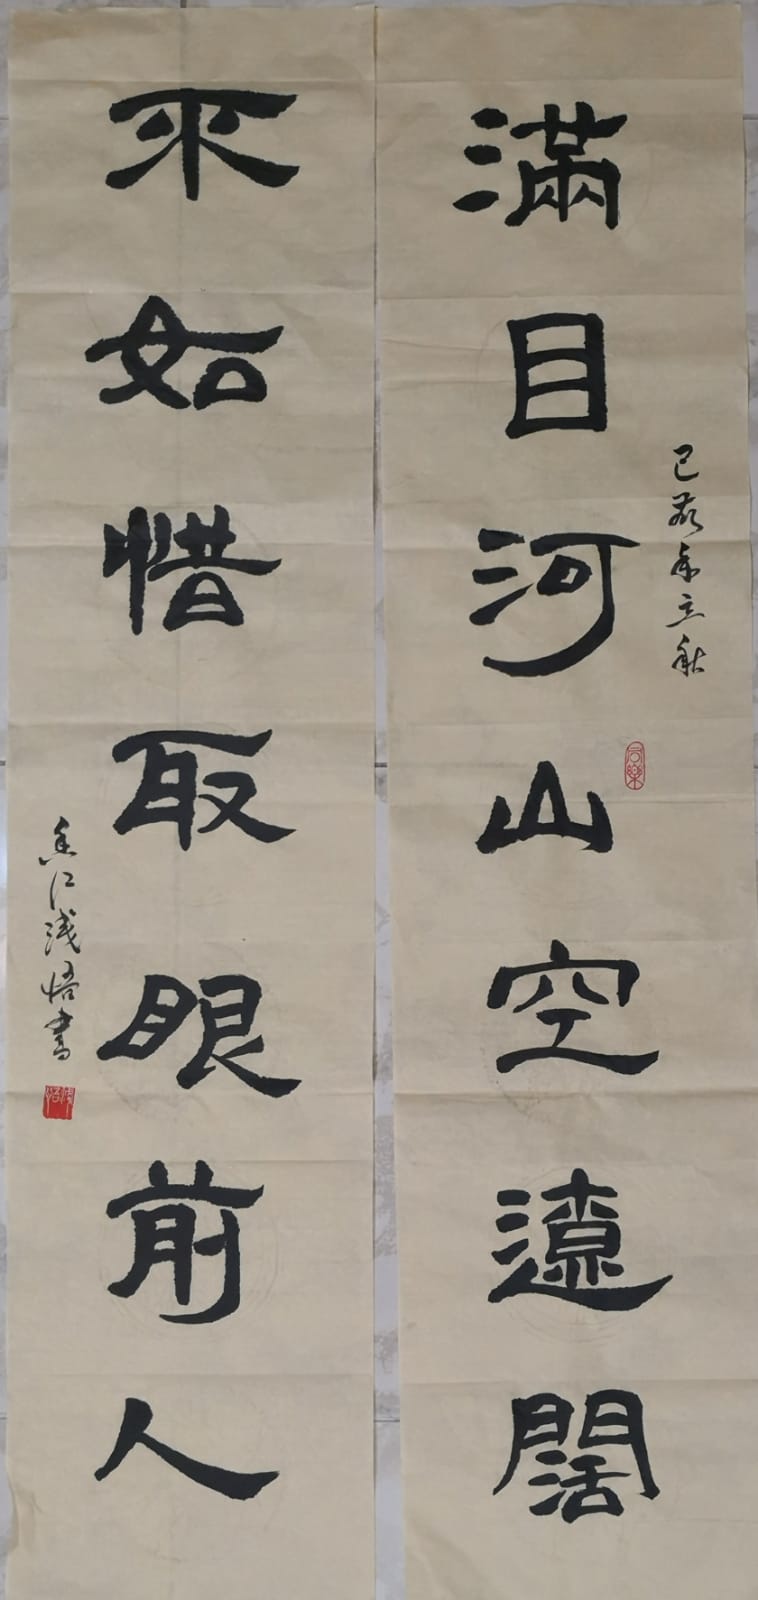 滿目河山空遼闊
己亥年立秋
同樂
不如惜取眼前人
香江浅悟書